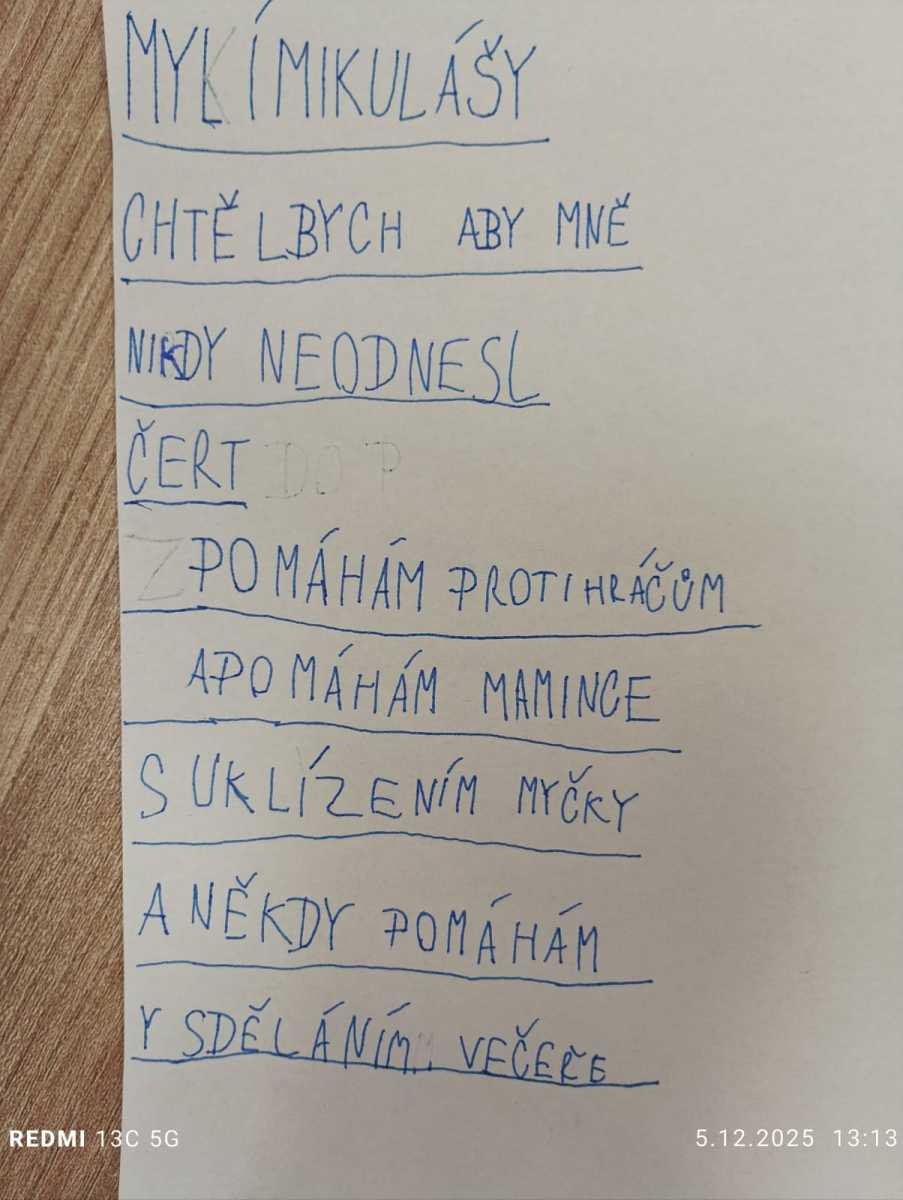 MYLÍ MIKULÁŠY
CHTĚLBYCH ABY MNĚ
NIKDY NEODNESL
ČERT DO P
Z POMÁHÁM PROTIHRÁČŮM
APOMÁHÁM MAMINCE
S UKLÍZENÍM MYČKY
A NĚKDY POMÁHÁM
Y SDĚLÁNÍM VEČEŘE
REDMI 13C 5G 5.12.2025 13:13